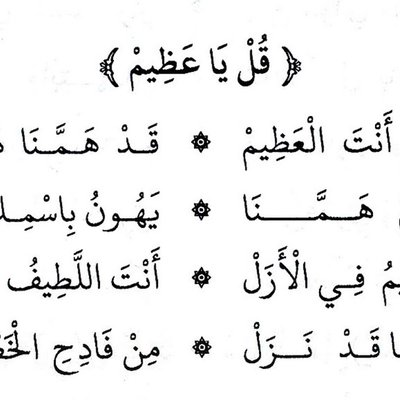 ﴿ قُلْ يَا عَظِيمْ ﴾
أَنْتَ الْعَظِيمْ ۞ قَدْ هَمَّنَا
هَمَّنَا ۞ يَهُونُ بِاسْمِكَ
فِي الْأَزَلْ ۞ أَنْتَ اللَّطِيفُ
قَدْ نَزَلْ ۞ مِنْ فَادِحِ